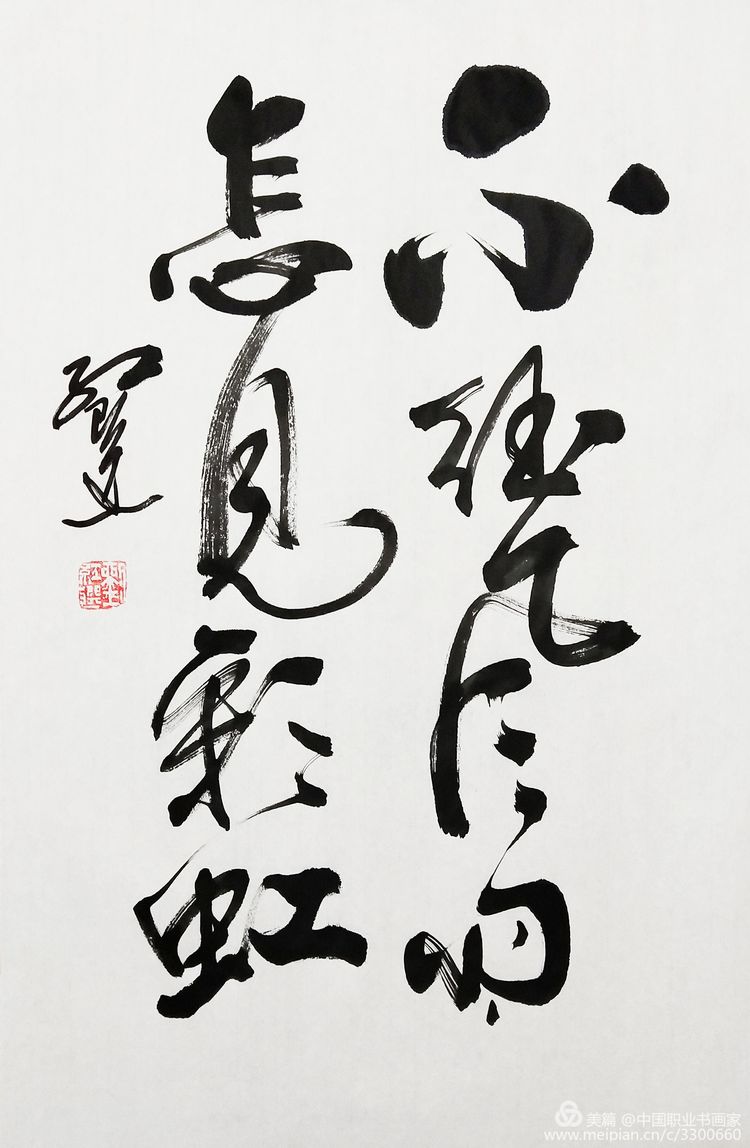 不经风雨
怎见彩虹
美篇 @中国职业书画家
www.meipian.cn/c/3300660